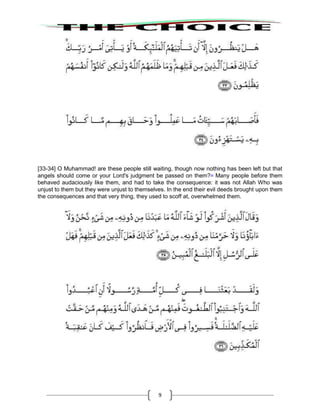 THE CHOICE
هَلْ يَنظُرُونَ إِلَّا أَن تَأْتِيَهُمُ الْمَلَائِكَةُ أَوْ يَأْتِيَ أَمْرُ رَبِّكَ ۚ
كَذَٰلِكَ فَعَلَ الَّذِينَ مِن قَبْلِهِمْ ۚ وَمَا ظَلَمَهُمُ اللَّهُ وَلَٰكِن كَانُوا أَنفُسَهُمْ
يَظْلِمُونَ ﴿٣٣﴾
فَأَصَابَهُمْ سَيِّئَاتُ مَا عَمِلُوا وَحَاقَ بِهِم مَّا كَانُوا
بِهِ يَسْتَهْزِئُونَ ﴿٣٤﴾
[33-34] O Muhammad! are these people still waiting, though now nothing has been left but that
angels should come or your Lord's judgment be passed on them?= Many people before them
behaved audaciously like them, and had to take the consequence: it was not Allah Who was
unjust to them but they were unjust to themselves. In the end their evil deeds brought upon them
the consequences and that very thing, they used to scoff at, overwhelmed them.
وَقَالَ الَّذِينَ أَشْرَكُوا لَوْ شَاءَ اللَّهُ مَا عَبَدْنَا مِن دُونِهِ مِن شَيْءٍ نَّحْنُ وَلَا
آبَاؤُنَا وَلَا حَرَّمْنَا مِن دُونِهِ مِن شَيْءٍ ۚ كَذَٰلِكَ فَعَلَ الَّذِينَ مِن قَبْلِهِمْ ۚ فَهَلْ
عَلَى الرُّسُلِ إِلَّا الْبَلَاغُ الْمُبِينُ ﴿٣٥﴾
وَلَقَدْ بَعَثْنَا فِي كُلِّ أُمَّةٍ رَّسُولًا أَنِ اعْبُدُوا
اللَّهَ وَاجْتَنِبُوا الطَّاغُوتَ ۖ فَمِنْهُم مَّنْ هَدَى اللَّهُ وَمِنْهُم مَّنْ حَقَّتْ
عَلَيْهِ الضَّلَالَةُ ۚ فَسِيرُوا فِي الْأَرْضِ فَانظُرُوا كَيْفَ كَانَ عَاقِبَةُ
الْمُكَذِّبِينَ ﴿٣٦﴾
9